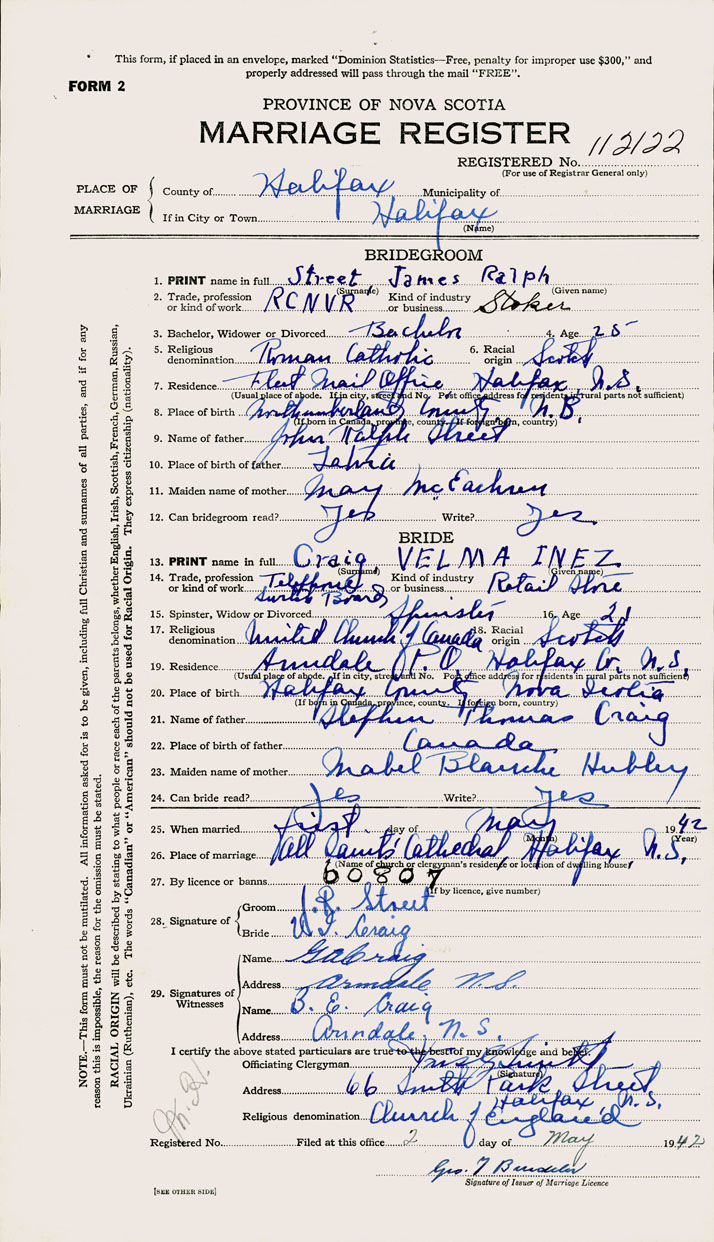 This form, if placed in an envelope, marked "Dominion Statistics—Free, penalty for improper use $300," and
properly addressed will pass through the mail "FREE".
FORM 2
PROVINCE OF NOVA SCOTIA
MARRIAGE REGISTER
112122
REGISTERED No.
(For use of Registrar General only)
PLACE OF MARRIAGE
County of Halifax Municipality of
If in City or Town Halifax
(Name)
BRIDEGROOM
1. PRINT name in full Street, James Ralph
(Surname) (Given name)
2. Trade, profession or kind of work RCNVR Kind of industry or business Stoker
3. Bachelor, Widower or Divorced Bachelor 4. Age 25
5. Religious denomination Roman Catholic 6. Racial origin Scotch
7. Residence Fleet Mail Office Halifax, N.S.
(Usual place of abode. If in city, street and No. Post office address for residents in rural parts not sufficient)
8. Place of birth Northumberland County, N.B.
(If born in Canada, province, county. If foreign born, country)
9. Name of father John Ralph Street
10. Place of birth of father Latvia
11. Maiden name of mother Mary McEachren
12. Can bridegroom read? Yes Write? Yes
BRIDE
13. PRINT name in full Craig, VELMA INEZ
(Surname) (Given name)
14. Trade, profession or kind of work Telephone Switch Board Kind of industry or business Retail Store
15. Spinster, Widow or Divorced Spinster 16. Age 21
17. Religious denomination United Church of Canada 18. Racial origin Scotch
19. Residence Armdale P.O. Halifax Co. N.S.
(Usual place of abode. If in city, street and No. Post office address for residents in rural parts not sufficient)
20. Place of birth Halifax County Nova Scotia
(If born in Canada, province, county. If foreign born, country)
21. Name of father Stephen Thomas Craig
22. Place of birth of father Canada
23. Maiden name of mother Mabel Blanche Hubley
24. Can bride read? Yes Write? Yes
25. When married first day of May 1942
(Month) (Year)
26. Place of marriage All Saints' Cathedral, Halifax N.S.
(Name of church or clergyman's residence or location of dwelling house)
27. By licence or banns 60807
(If by licence, give number)
28. Signature of
Groom J.R. Street
Bride V.I. Craig
29. Signatures of Witnesses
Name G A Craig
Address Armdale N.S.
Name B. E. Craig
Address Armdale, N.S.
I certify the above stated particulars are true to the best of my knowledge and belief.
Officiating Clergyman
(Signature)
Address 66 South Park Street,
Halifax N.S.
Religious denomination Church of England
Registered No. Filed at this office 2 day of May 1942
Geo. T
Signature of Issuer of Marriage Licence
[SEE OTHER SIDE]
NOTE.—This form must not be mutilated. All information asked for is to be given, including full Christian and surnames of all parties, and if for any
reason this is impossible, the reason for the omission must be stated.
RACIAL ORIGIN will be described by stating to what people or race each of the parents belongs, whether English, Irish, Scottish, French, German, Russian,
Ukrainian (Ruthenian), etc. The words "Canadian" or "American" should not be used for Racial Origin. They express citizenship (nationality).